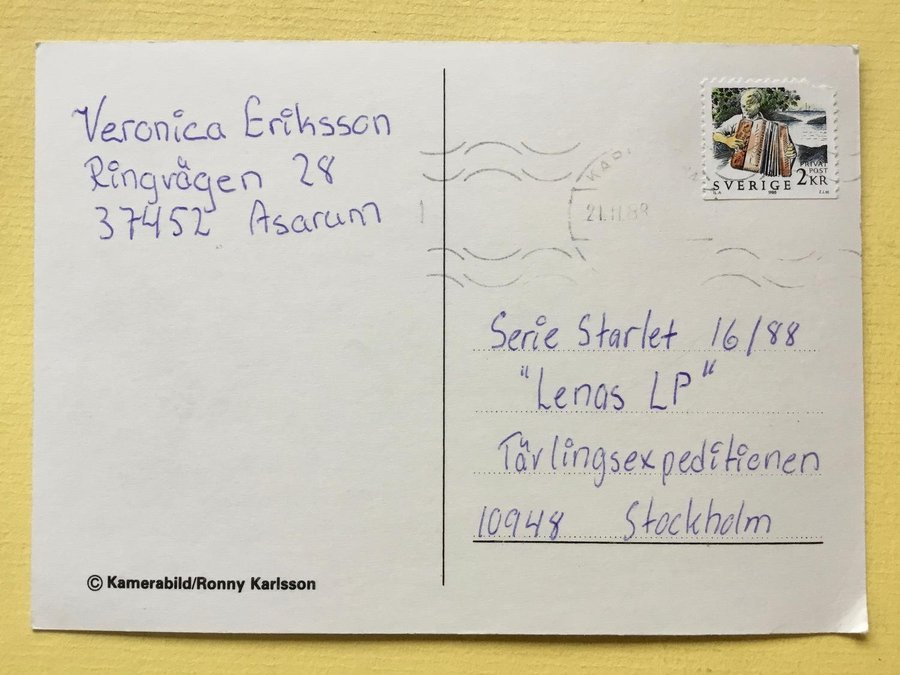 Veronica Eriksson
Ringvägen 28
37452 Asarum
PRIVAT
POST
SVERIGE 2KR
21.11.88
Serie Starlet 16/88
"Lenas LP"
Tävlingsexpeditionen
10948 Stockholm
© Kamerabild/Ronny Karlsson